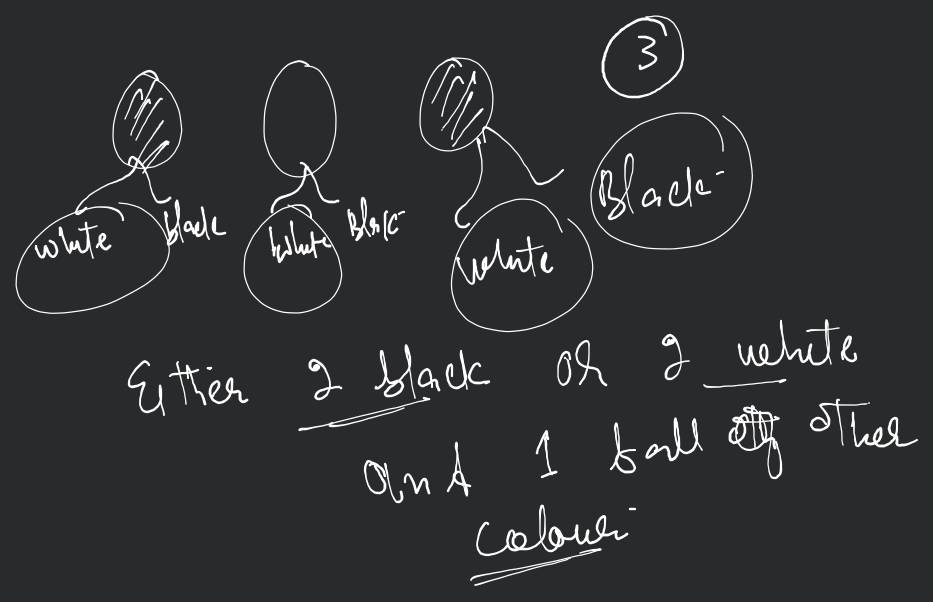 3
white black White Black white Black
Either 2 black or 2 white
and 1 ball of other
colour